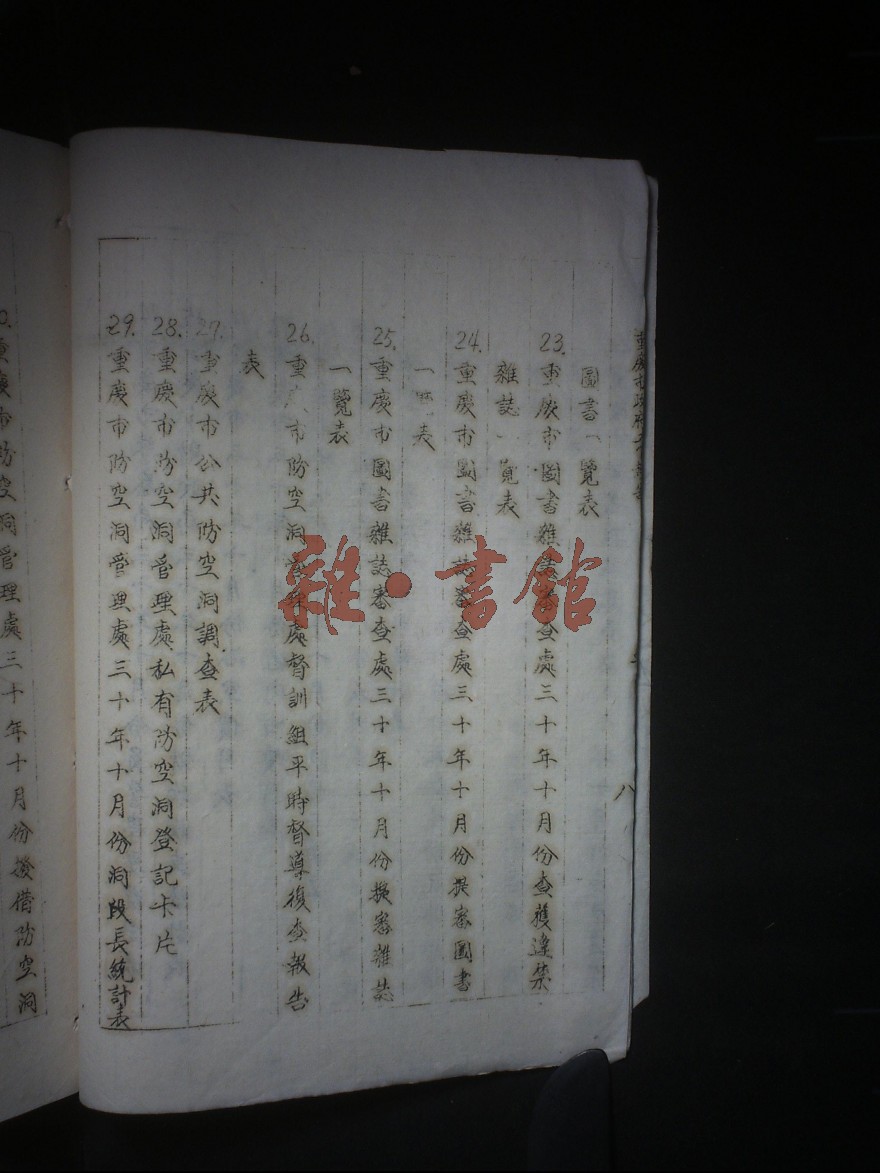 重慶市政府工作報告
八
圖書一覽表
23. 重慶市圖書雜誌審查處三十年十月份查獲違禁
雜誌一覽表
24. 重慶市圖書雜誌審查處三十年十月份提審圖書
一覽表
25. 重慶市圖書雜誌審查處三十年十月份提審雜誌
一覽表
26. 重慶市防空洞管理處督訓組平時督導復查報告
表
27. 重慶市公共防空洞調查表
28. 重慶市防空洞管理處私有防空洞登記卡片
29. 重慶市防空洞管理處三十年十月份洞段長統計表
重慶市防空洞管理處三十年十月份撥借防空洞
雜·書館